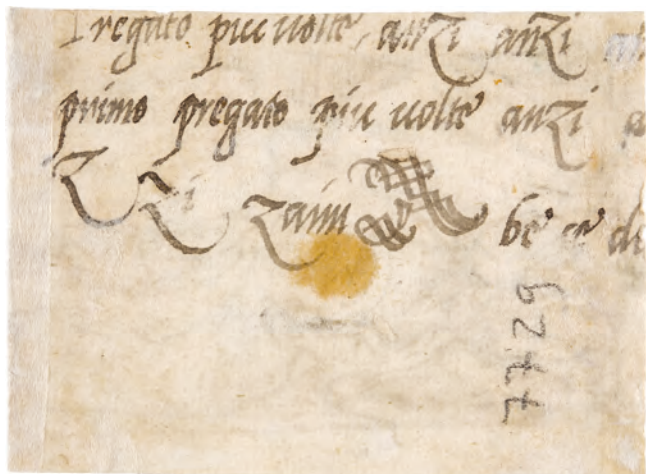 Pregato piu uolte, anzi anzi
primo pregato piu uolte anzi a
Z Zi zaim be ce di
7729